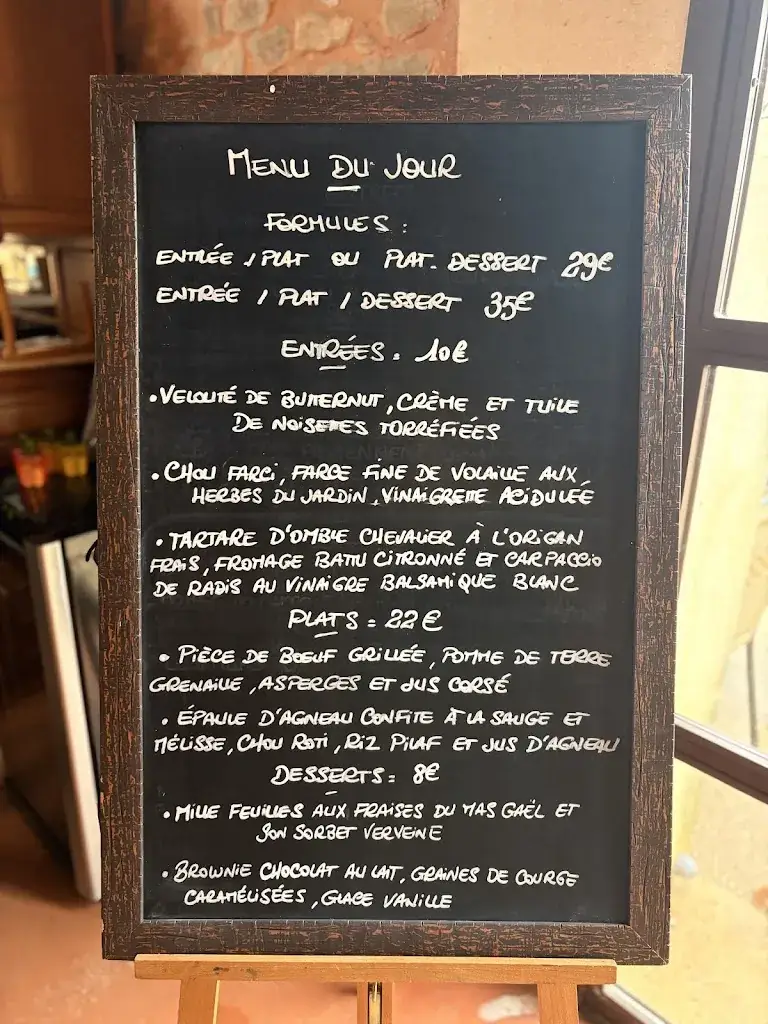 MENU DU JOUR
FORMULES :
ENTRÉE / PLAT OU PLAT. DESSERT 29€
ENTRÉE / PLAT / DESSERT 35€
ENTRÉES = 10€
• VELOUTÉ DE BUTTERNUT, CRÈME ET TUILE
DE NOISETTES TORRÉFIÉES
• CHOU FARCI, FARCE FINE DE VOLAILLE AUX
HERBES DU JARDIN, VINAIGRETTE ACIDULÉE
• TARTARE D'OMBLE CHEVALIER À L'ORIGAN
FRAIS, FROMAGE BATTU CITRONNÉ ET CARPACCIO
DE RADIS AU VINAIGRE BALSAMIQUE BLANC
PLATS = 22€
• PIÈCE DE BŒUF GRILLÉE, POMME DE TERRE
GRENAILLE, ASPERGES ET JUS CORSÉ
• ÉPAULE D'AGNEAU CONFITE À LA SAUGE ET
MÉLISSE, CHOU ROTI, RIZ PILAF ET JUS D'AGNEAU
DESSERTS = 8€
• MILLE FEUILLES AUX FRAISES DU MAS GAËL ET
SON SORBET VERVEINE
• BROWNIE CHOCOLAT AU LAIT, GRAINES DE COURGE
CARAMÉLISÉES, GLACE VANILLE